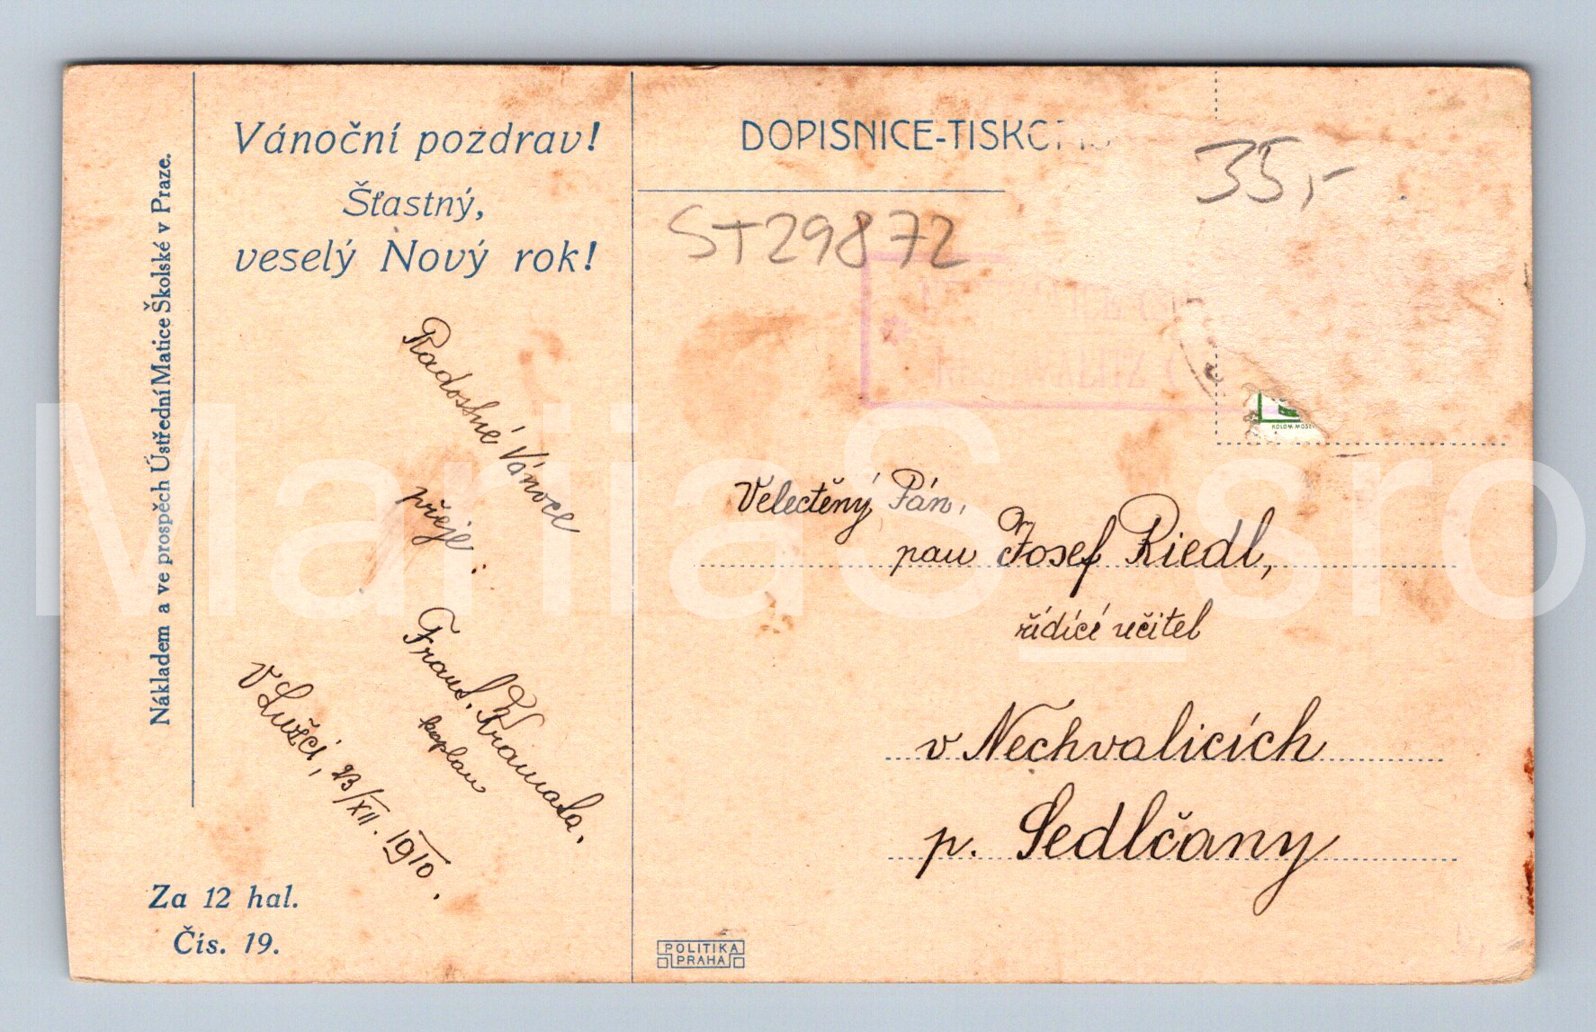 Nákladem a ve prospěch Ústřední Matice Školské v Praze.
Vánoční pozdrav!
Šťastný,
veselý Nový rok!
Radostné Vánoce
přeje:
Frant. Kramata,
kaplan
v Lužci, 23/XII. 1910.
Za 12 hal.
Čís. 19.
DOPISNICE-TISKO
35,-
ST29872
KOLOM. MOSER
Velectěný Pán,
pan Josef Riedl,
řídící učitel
v Nechvalicích
p. Sedlčany
POLITIKA
PRAHA
MariaS_sro